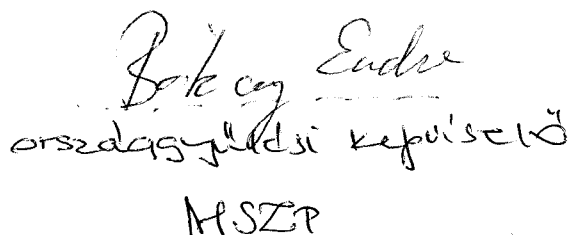 Bókay Endre
országgyűlési képviselő
MSZP